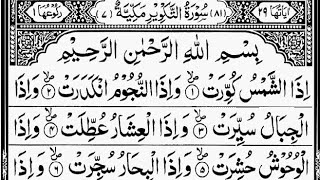 اٰیَاتُهَا ٢٩ (٨١) سُوْرَةُ التَّكْوِيْرِ مَكِّيَّةٌ (٧) رُكُوْعُهَا ١
بِسْمِ اللّٰهِ الرَّحْمٰنِ الرَّحِيْمِ
اِذَا الشَّمْسُ كُوِّرَتْ ١ وَاِذَا النُّجُوْمُ انْكَدَرَتْ ٢ وَاِذَا
الْجِبَالُ سُيِّرَتْ ٣ وَاِذَا الْعِشَارُ عُطِّلَتْ ٤ وَاِذَا
الْوُحُوْشُ حُشِرَتْ ٥ وَاِذَا الْبِحَارُ سُجِّرَتْ ٦ وَاِذَا